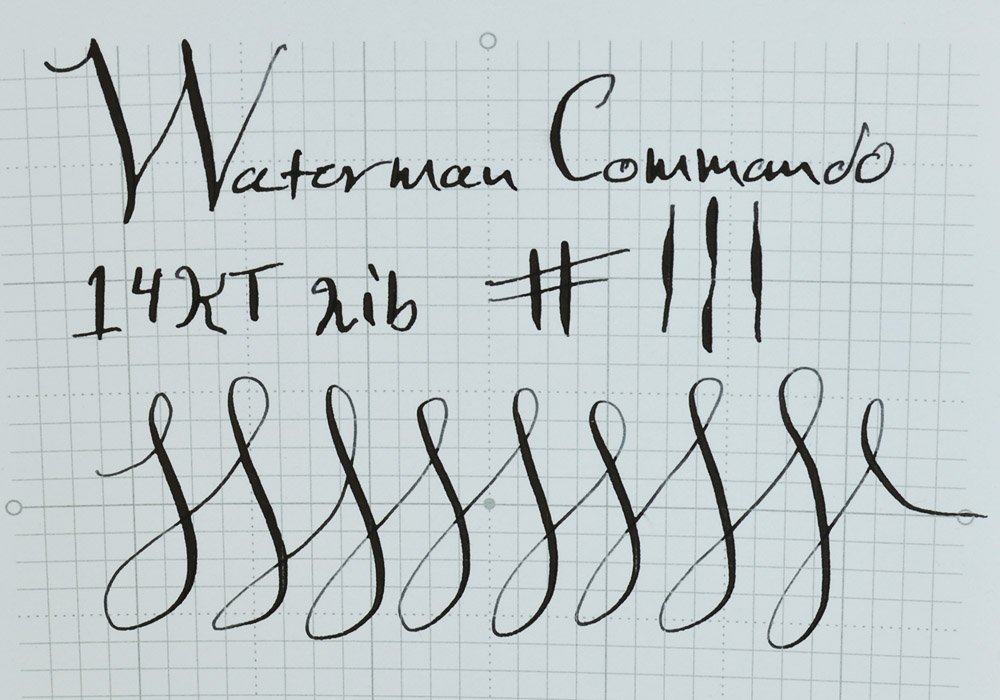 Waterman Commando
14KT nib #